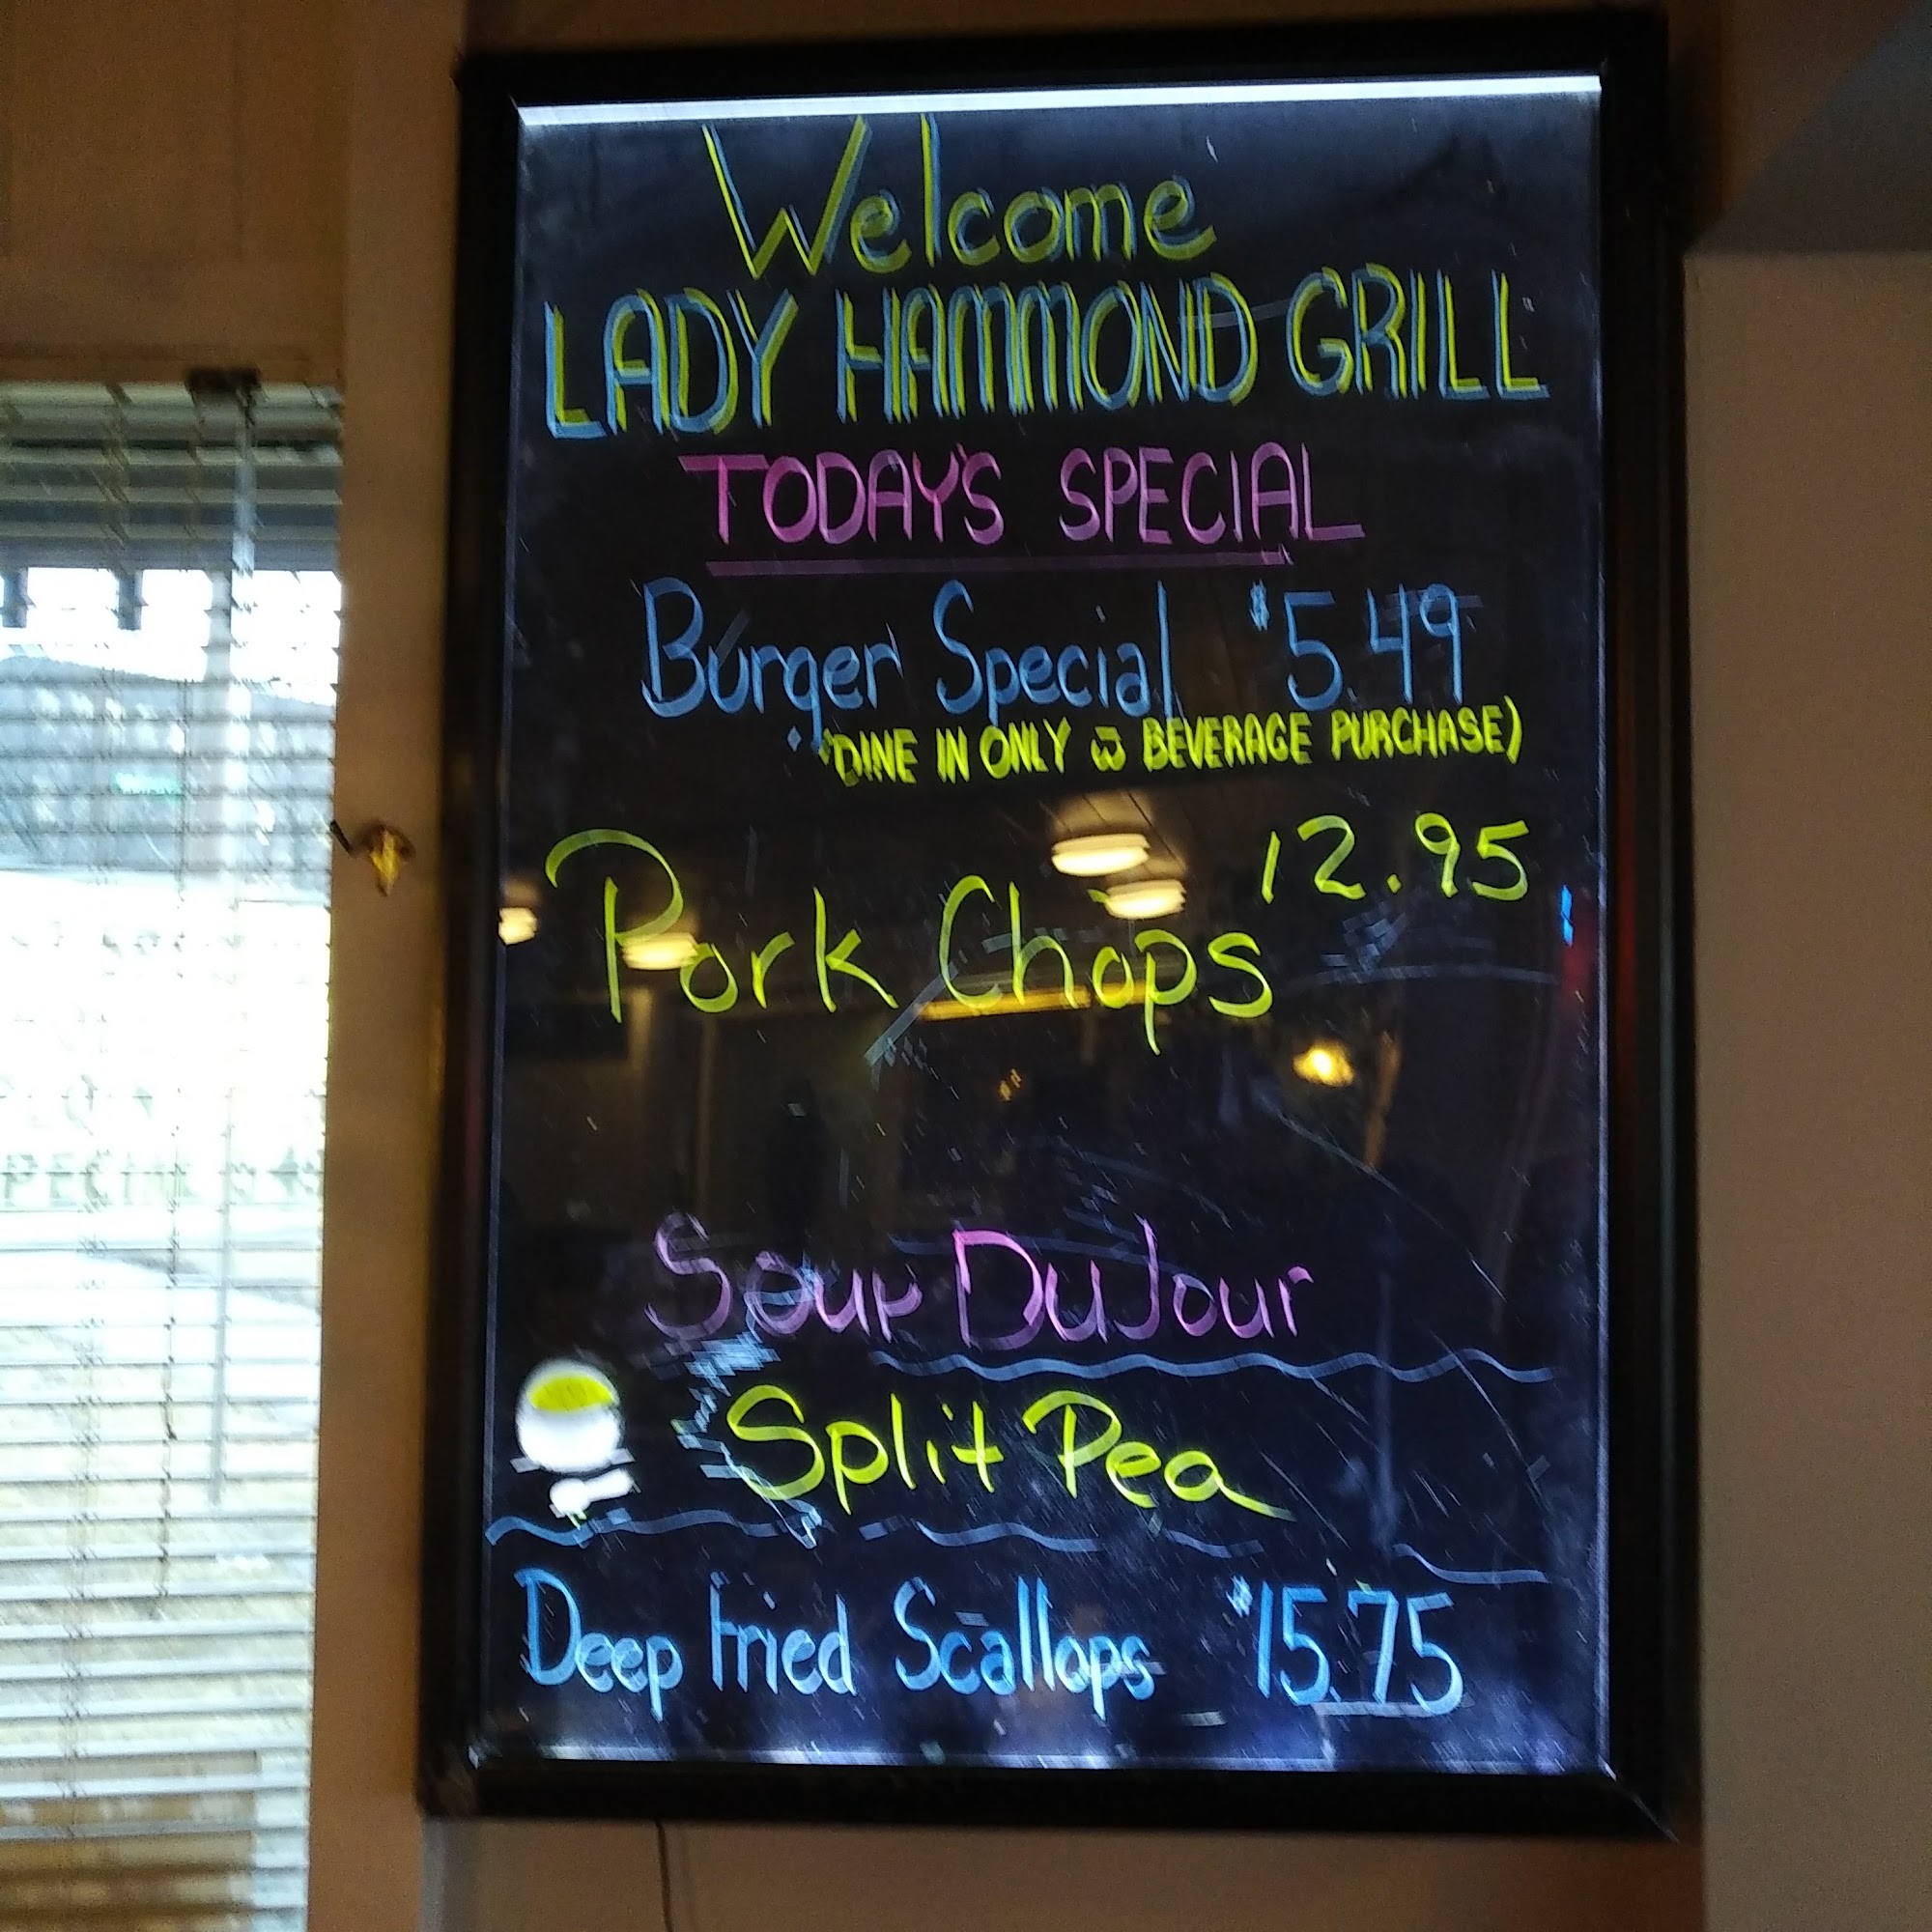 Welcome
LADY HAMMOND GRILL
TODAY'S SPECIAL
Burger Special $5.49
(DINE IN ONLY w̄ BEVERAGE PURCHASE)
12.95
Pork Chops
Soup DuJour
Split Pea
Deep Fried Scallops $15.75